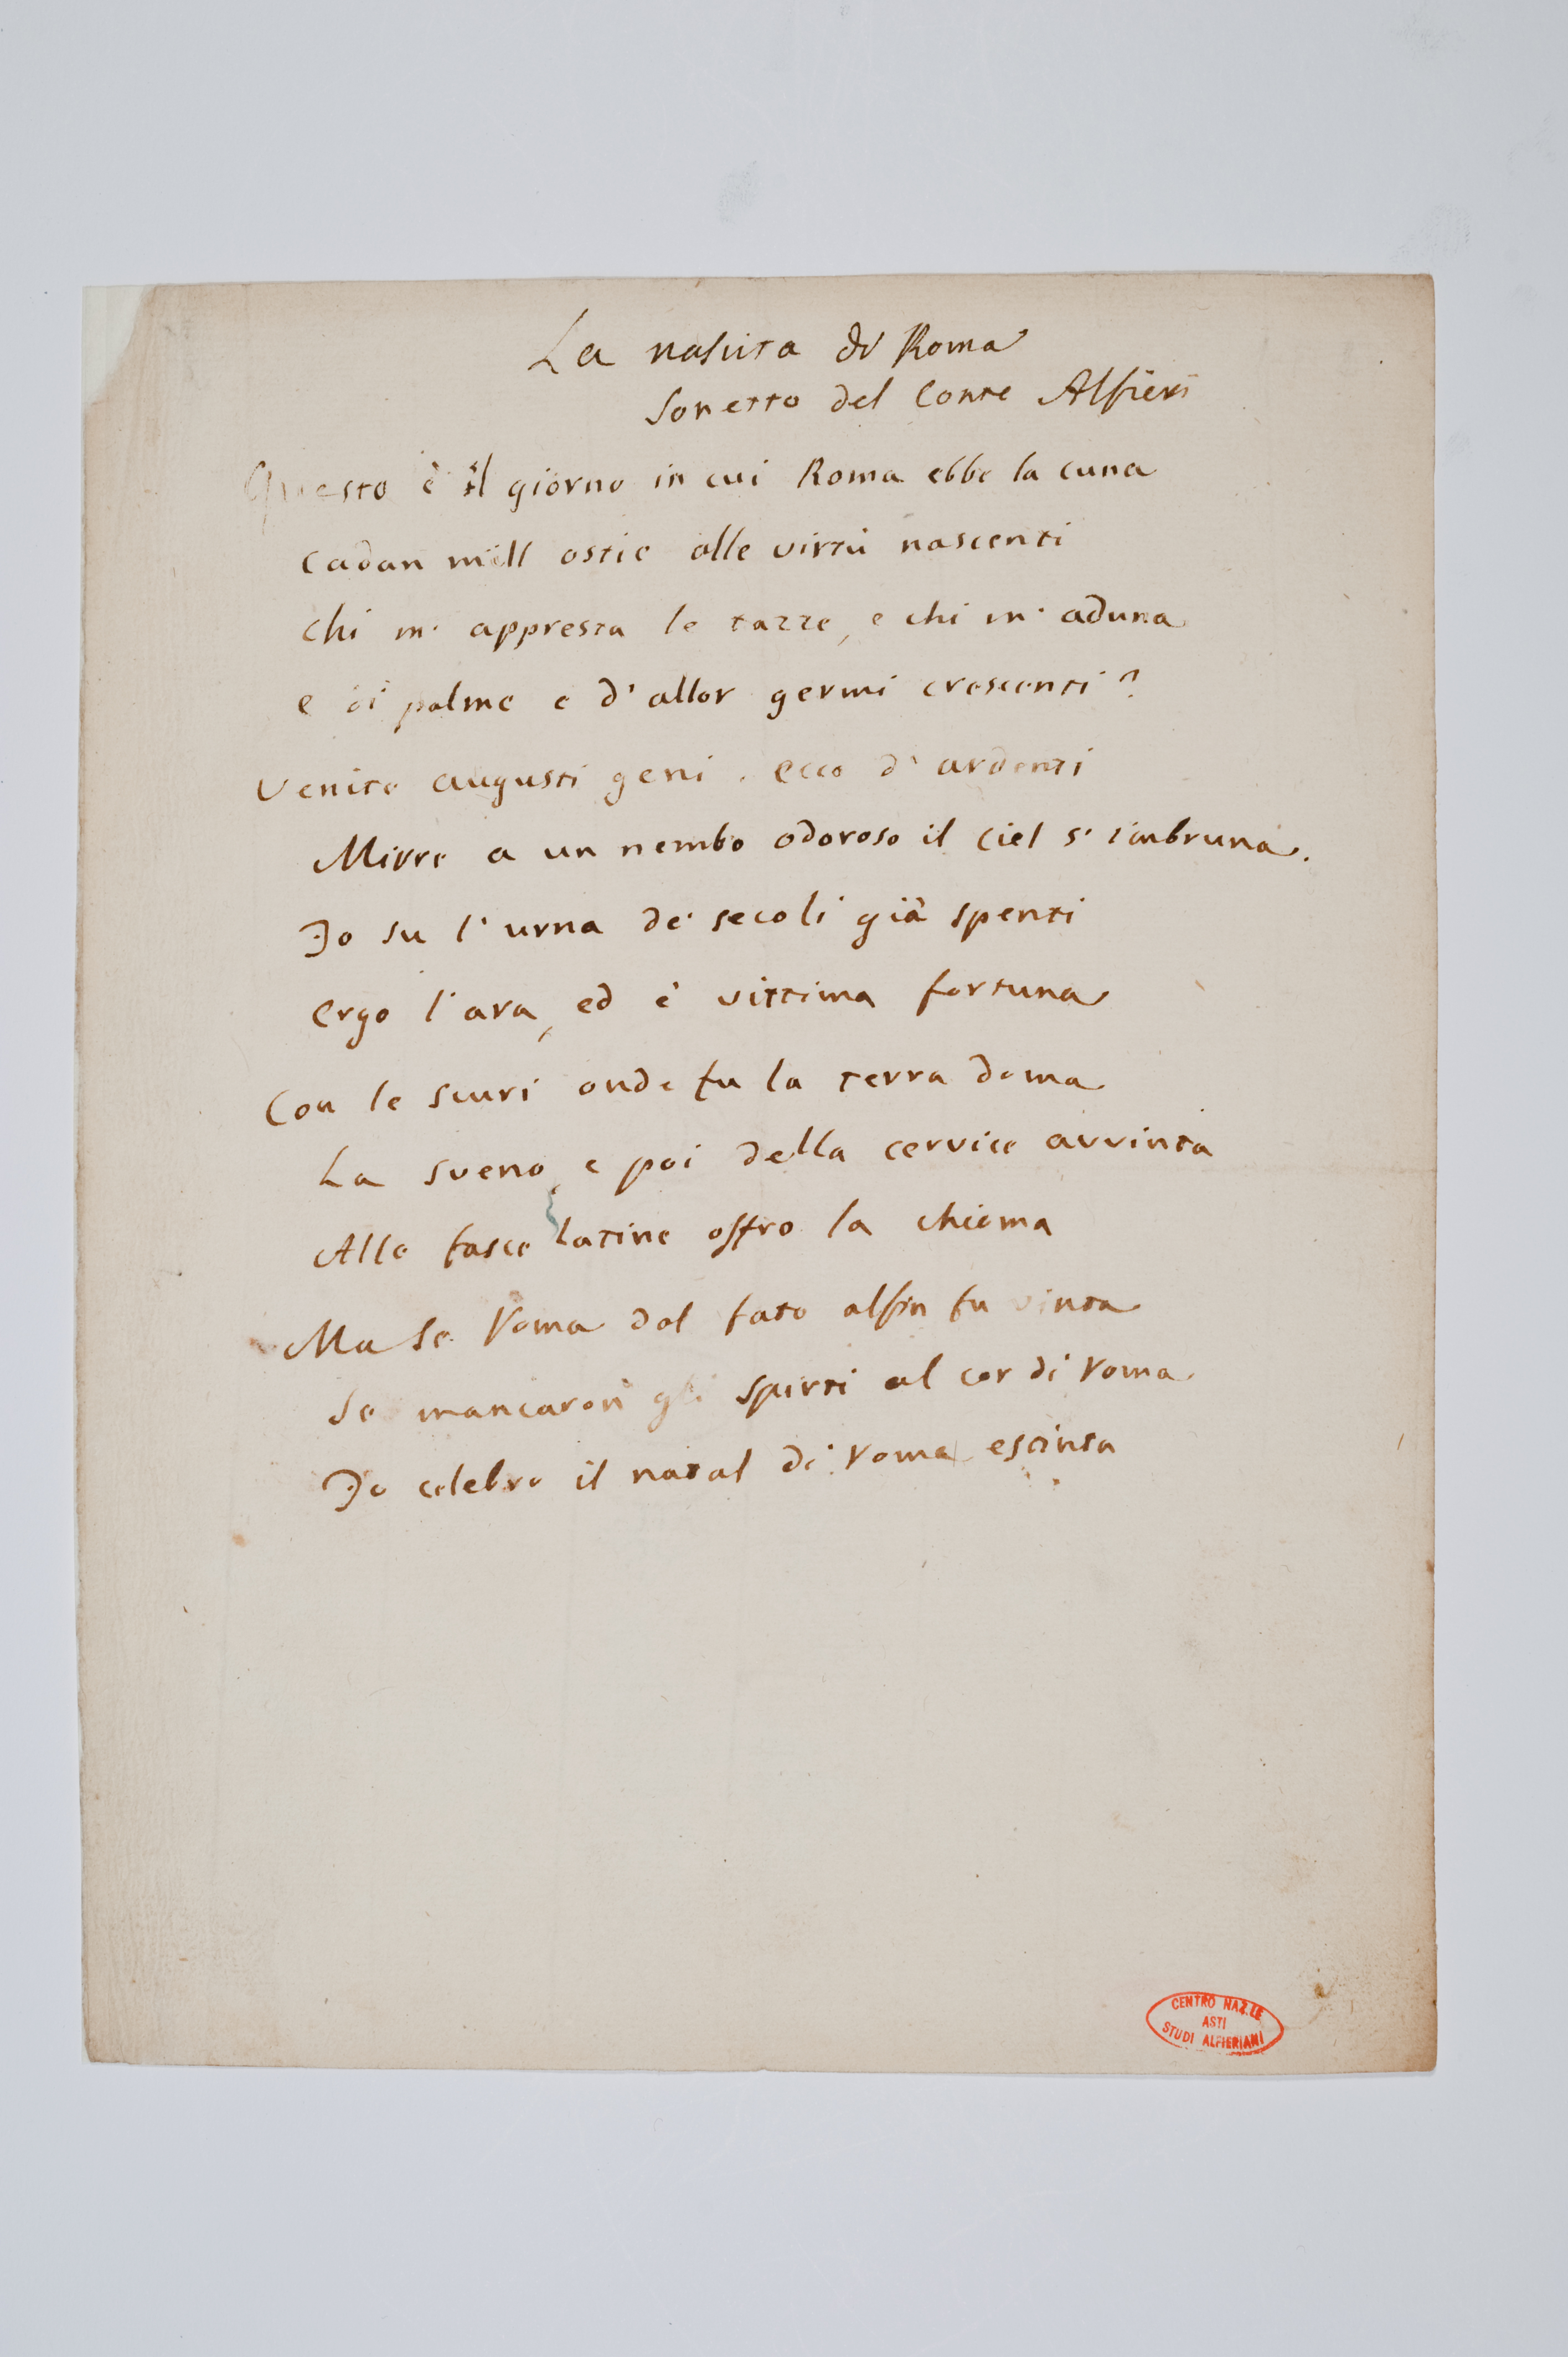 La nascita di Roma
Sonetto del Conte Alfieri
Questo è il giorno in cui Roma ebbe la cuna
Cadan mill ostie alle virtù nascenti
Chi m' appresta le tazze, e chi m' aduna
e di palme e d' allor germi crescenti?
Venite augusti geni. ecco d' ardenti
Mirre a un nembo odoroso il Ciel s' imbruna.
Io su l' urna de' secoli già spenti
Ergo l' ara, ed è vittima fortuna
Con le scuri onde fu la terra doma
La sveno, e poi della cervice avvinta
Alle fasce latine offro la chioma
Ma se Roma dal fato alfin fu vinta
Se mancaron gli spirti al cor di Roma
Io celebro il natal di Roma estinta
CENTRO NAZ.LE
ASTI
STUDI ALFIERIANI